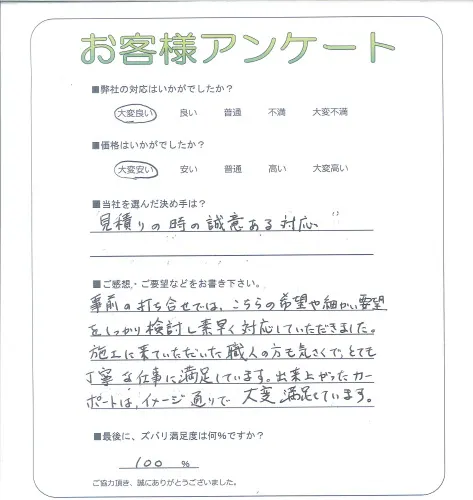 お客様アンケート
■弊社の対応はいかがでしたか?
大変良い 良い 普通 不満 大変不満
■価格はいかがでしたか?
大変安い 安い 普通 高い 大変高い
■当社を選んだ決め手は?
見積りの時の誠意ある対応
■ご感想・ご要望などをお書き下さい。
事前の打ち合せでは、こちらの希望や細かい要望
をしっかり検討し素早く対応していただきました。
施工に来ていただいた職人の方も気さくで、とても
丁寧な仕事に満足しています。出来上がったカー
ポートは、イメージ通りで 大変 満足しています。
■最後に、ズバリ満足度は何%ですか?
100 %
ご協力頂き、誠にありがとうございました。